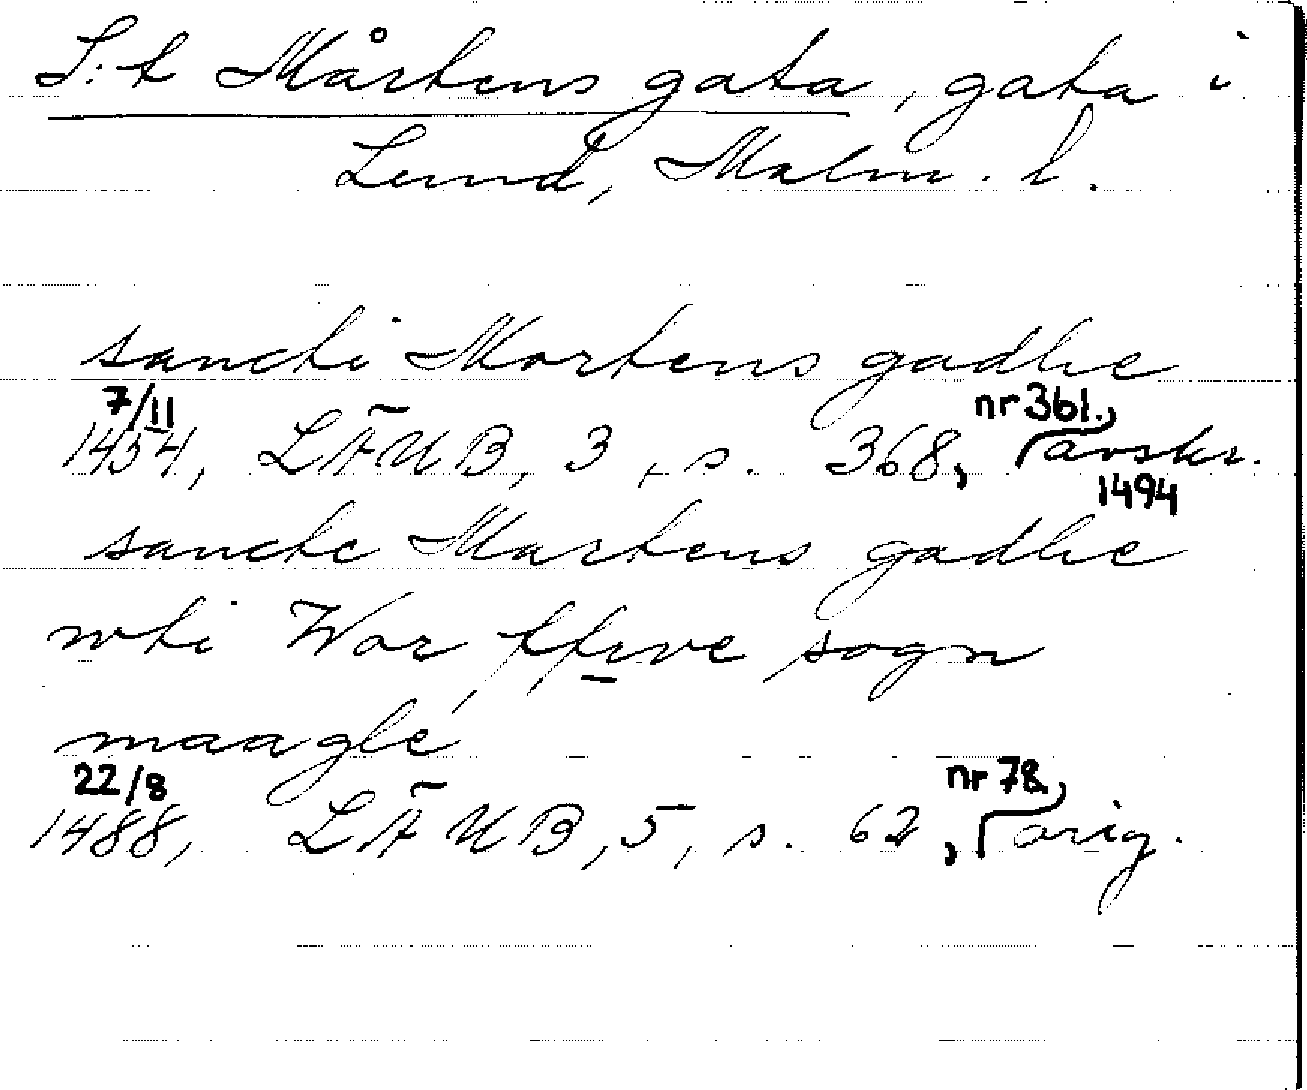 S:t Mårtens gata, gata i
Lund, Malm. l.
sancti Mortens gadhe
7/11 nr 361.,
1454, LÄUB, 3, s. 368, avskr.
1494
sancte Martens gadhe
wti War ffrwe sogn
maagle
22/8 nr 78,
1488, LÄUB, 5, s. 62, orig.